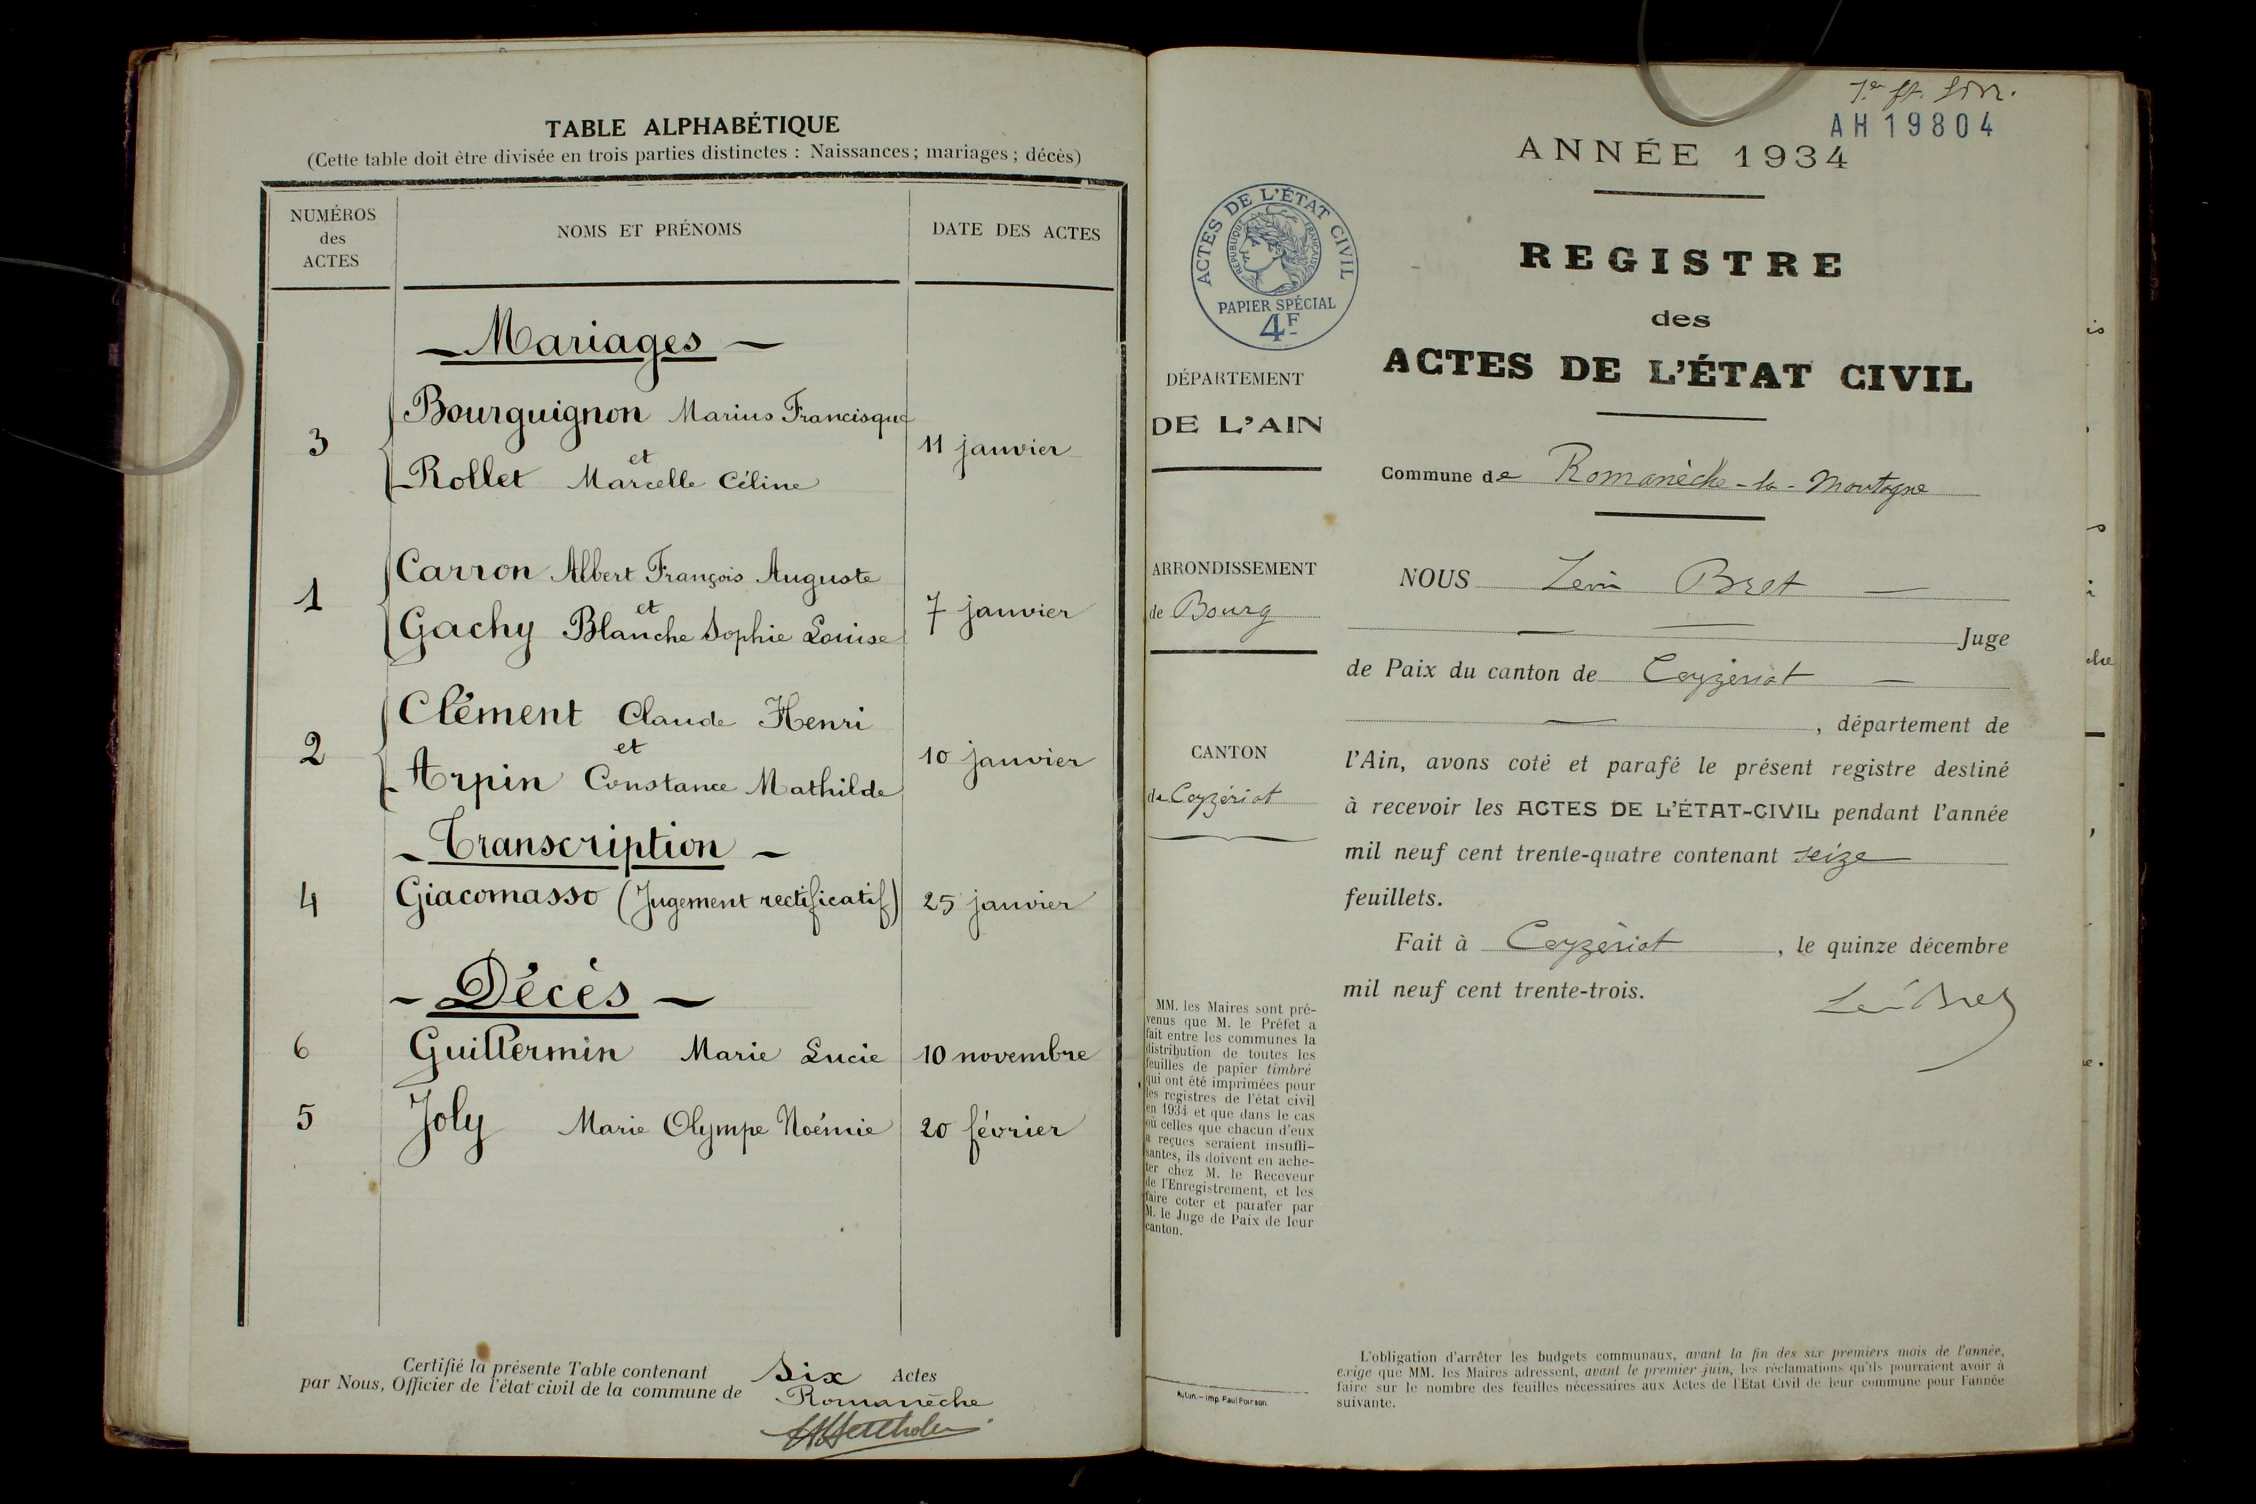 TABLE ALPHABÉTIQUE
(Cette table doit être divisée en trois parties distinctes : Naissances ; mariages ; décès)
NUMÉROS
des
ACTES
NOMS ET PRÉNOMS
DATE DES ACTES
Mariages
Bourguignon Marius Francisque
3 et 11 janvier
Rollet Marcelle Céline
Carron Albert François Auguste
1 et 7 janvier
Gachy Blanche Sophie Louise
Clément Claude Henri
2 et 10 janvier
Arpin Constance Mathilde
Transcription
4 Giacomasso (Jugement rectificatif) 25 janvier
Décès
6 Guillermin Marie Lucie 10 novembre
5 Joly Marie Olympe Noémie 20 février
Certifié la présente Table contenant six Actes
par Nous, Officier de l'état civil de la commune de Romanèche
AH 19804
ANNÉE 1934
REGISTRE
des
ACTES DE L'ÉTAT CIVIL
ACTES DE L'ÉTAT CIVIL
RÉPUBLIQUE FRANÇAISE
PAPIER SPÉCIAL
4F
DÉPARTEMENT
DE L'AIN
ARRONDISSEMENT
de Bourg
CANTON
de Ceyzériat
MM. les Maires sont pré-
venus que M. le Préfet a
fait entre les communes la
distribution de toutes les
feuilles de papier timbré
qui ont été imprimées pour
les registres de l'état civil
en 1934 et que dans le cas
où celles que chacun d'eux
a reçues seraient insuffi-
santes, ils doivent en ache-
ter chez M. le Receveur
de l'Enregistrement, et les
faire coter et parafer par
M. le Juge de Paix de leur
canton.
Autun. — Imp. Paul Poirson
Commune de Romanèche-la-Montagne
NOUS Léon Bret
Juge
de Paix du canton de Ceyzériat
, département de
l'Ain, avons coté et parafé le présent registre destiné
à recevoir les ACTES DE L'ÉTAT-CIVIL pendant l'année
mil neuf cent trente-quatre contenant seize
feuillets.
Fait à Ceyzériat , le quinze décembre
mil neuf cent trente-trois.
Léon Bret
L'obligation d'arrêter les budgets communaux, avant la fin des six premiers mois de l'année,
exige que MM. les Maires adressent, avant le premier juin, les réclamations qu'ils pourraient avoir à
faire sur le nombre des feuilles nécessaires aux Actes de l'Etat Civil de leur commune pour l'année
suivante.